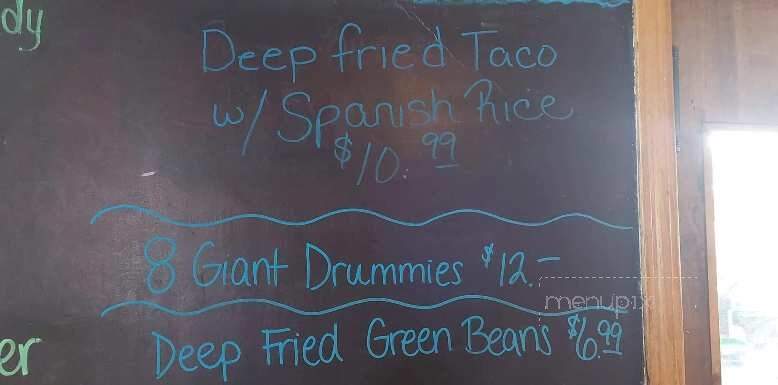 dy
Deep fried Taco
w/ Spanish Rice
$10.99
8 Giant Drummies $12.-
menupix
er
Deep Fried Green Beans $6.99